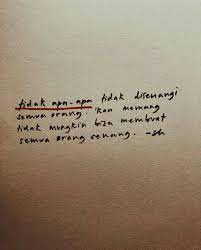 tidak apa-apa tidak disenangi
semua orang. 'kan memang
tidak mungkin bisa membuat
semua orang senang. -sh